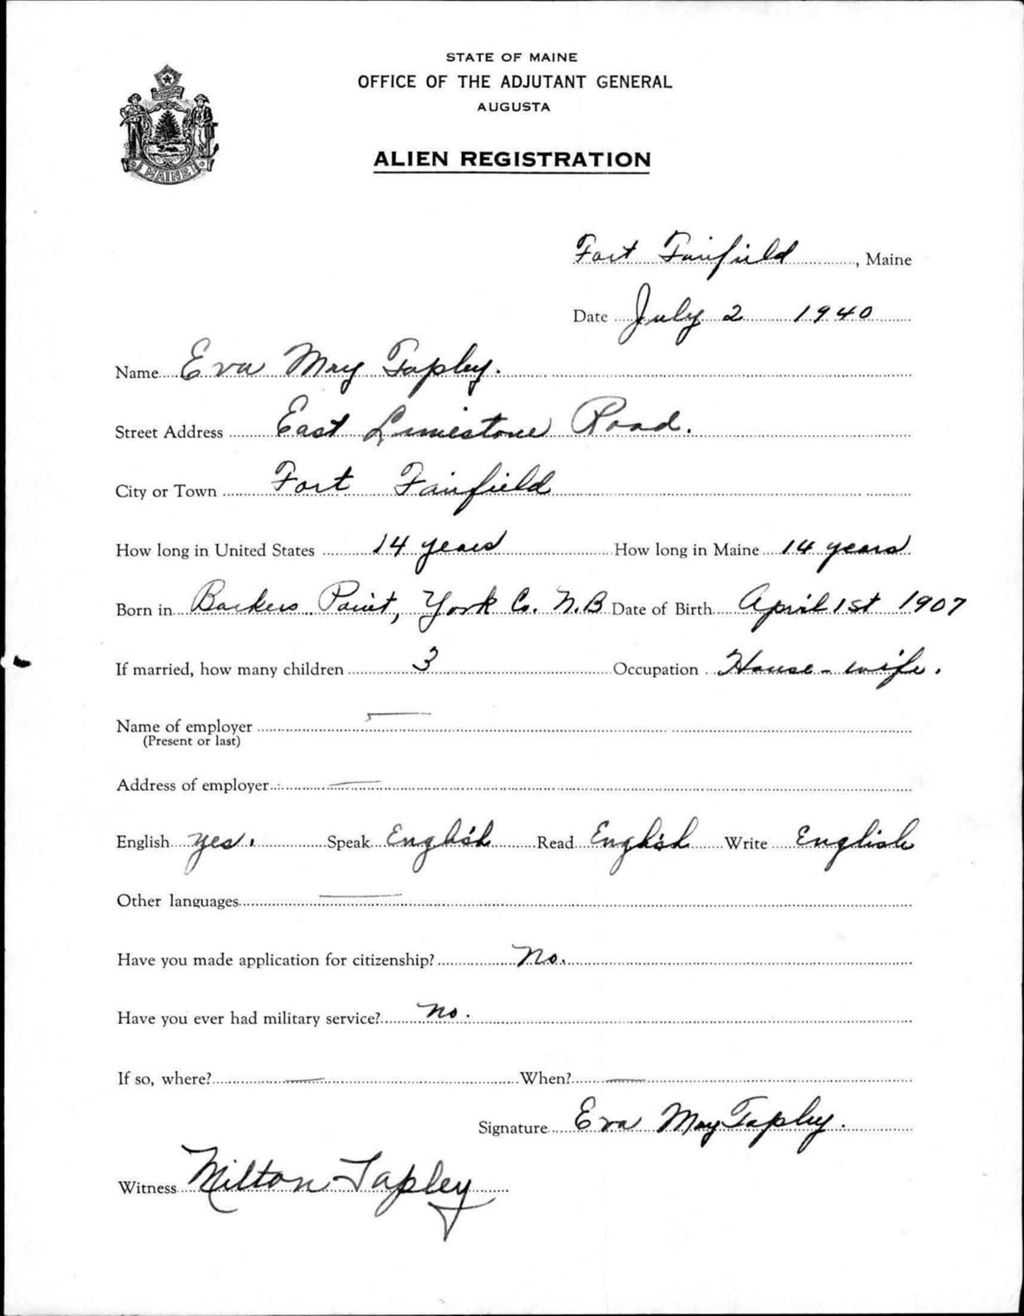 STATE OF MAINE
OFFICE OF THE ADJUTANT GENERAL
AUGUSTA
ALIEN REGISTRATION
MAINE
Fort Fairfield, Maine
Date July 2 1940
Name Eva May Tapley.
Street Address East Limestone Road.
City or Town Fort Fairfield
How long in United States 14 years How long in Maine 14 years
Born in Barkers Point, York Co. N.B Date of Birth April 1st 1907
If married, how many children 3 Occupation House-wife.
Name of employer —
(Present or last)
Address of employer —
English yes. Speak English Read English Write English
Other languages —
Have you made application for citizenship? No.
Have you ever had military service? no.
If so, where? — When? —
Signature Eva May Tapley.
Witness Milton Tapley